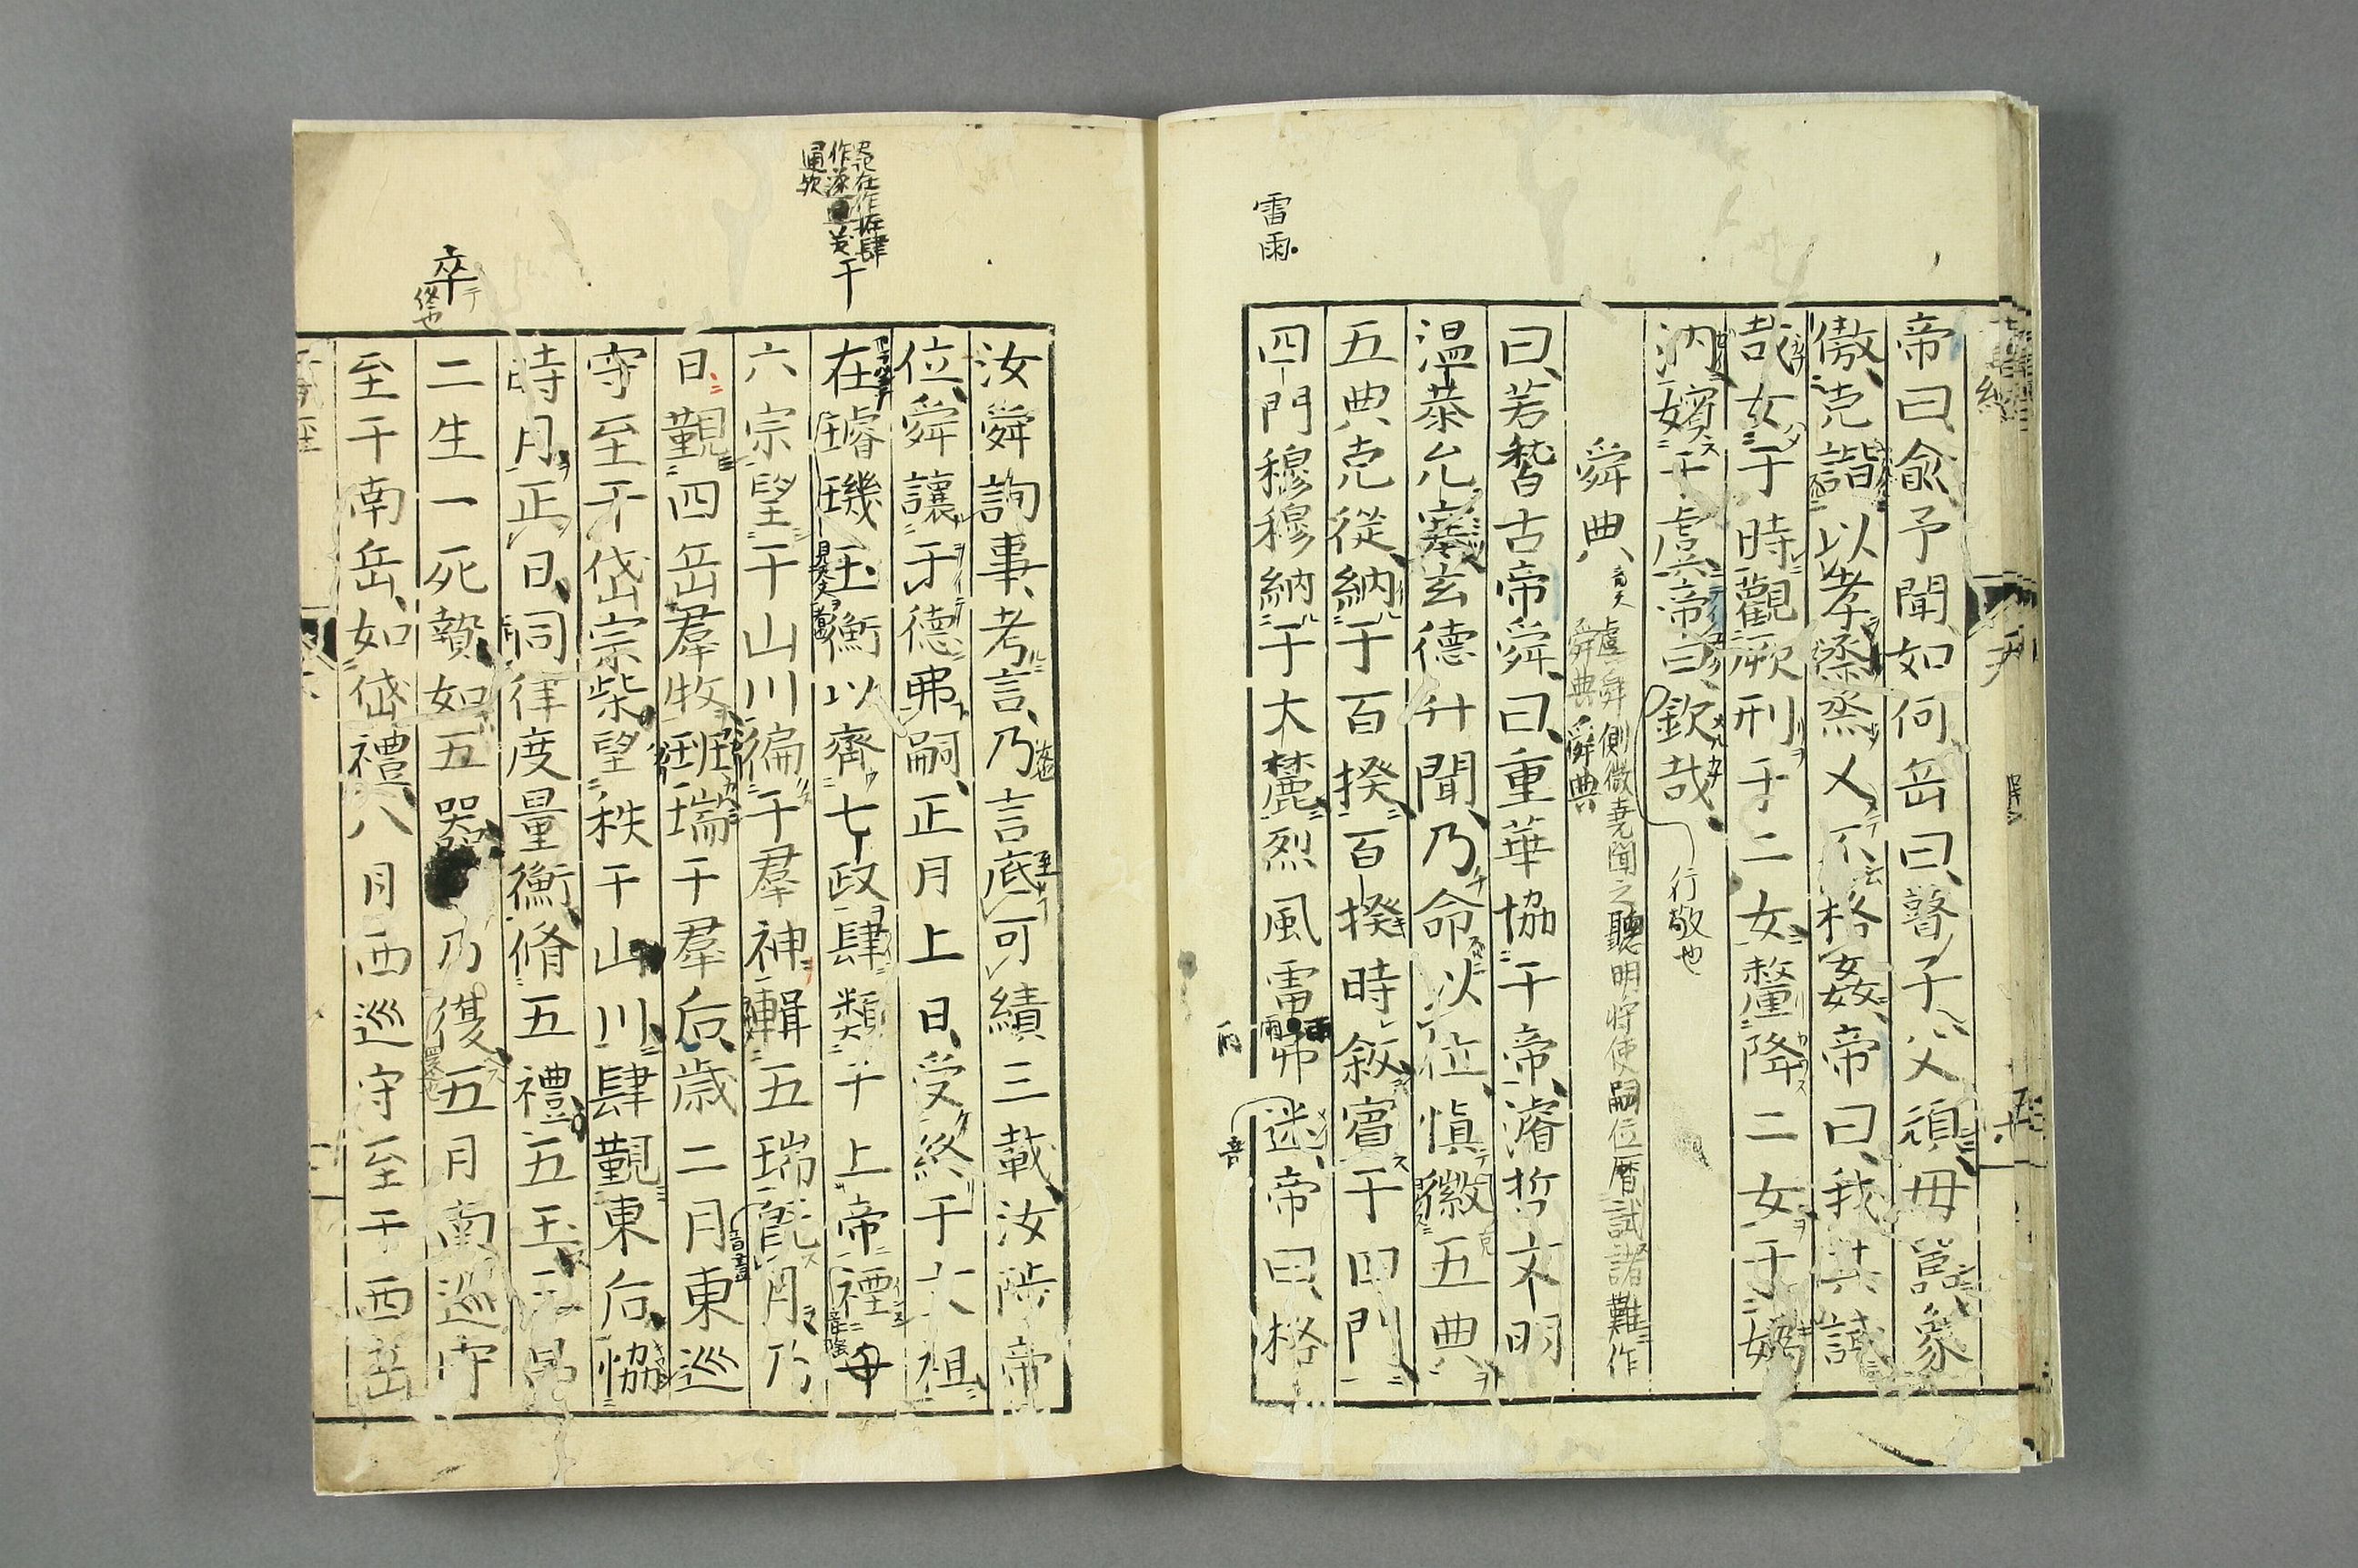 雷雨
帝曰俞予聞如何岳曰瞽子父頑母嚚象
傲克諧以孝烝烝乂不格姦帝曰我其試
哉女于時觀厥刑于二女釐降二女于嬀
汭嬪于虞帝曰欽哉
行敬也
舜典
虞舜側微堯聞之聰明将使嗣位歴試諸難作
舜典 舜典
曰若稽古帝舜曰重華協于帝濬哲文明
温恭允塞玄德升聞乃命以位慎徽五典
五典克從納于百揆百揆時敘賓于四門
四門穆穆納于大麓烈風雷雨弗迷帝曰格
汝舜詢事考言乃言底可績三載汝陟帝
位舜讓于德弗嗣正月上日受終于太祖
在璿璣玉衡以齊七政肆類于上帝禋
六宗望于山川徧于羣神輯五瑞既月乃
日覲四岳羣牧班瑞于羣后歲二月東巡
守至于岱宗柴望秩于山川肆覲東后協
時月正日同律度量衡脩五禮五玉三帛
二生一死贄如五器乃復五月南巡守
至于南岳如岱禮八月西巡守至于西岳
卒